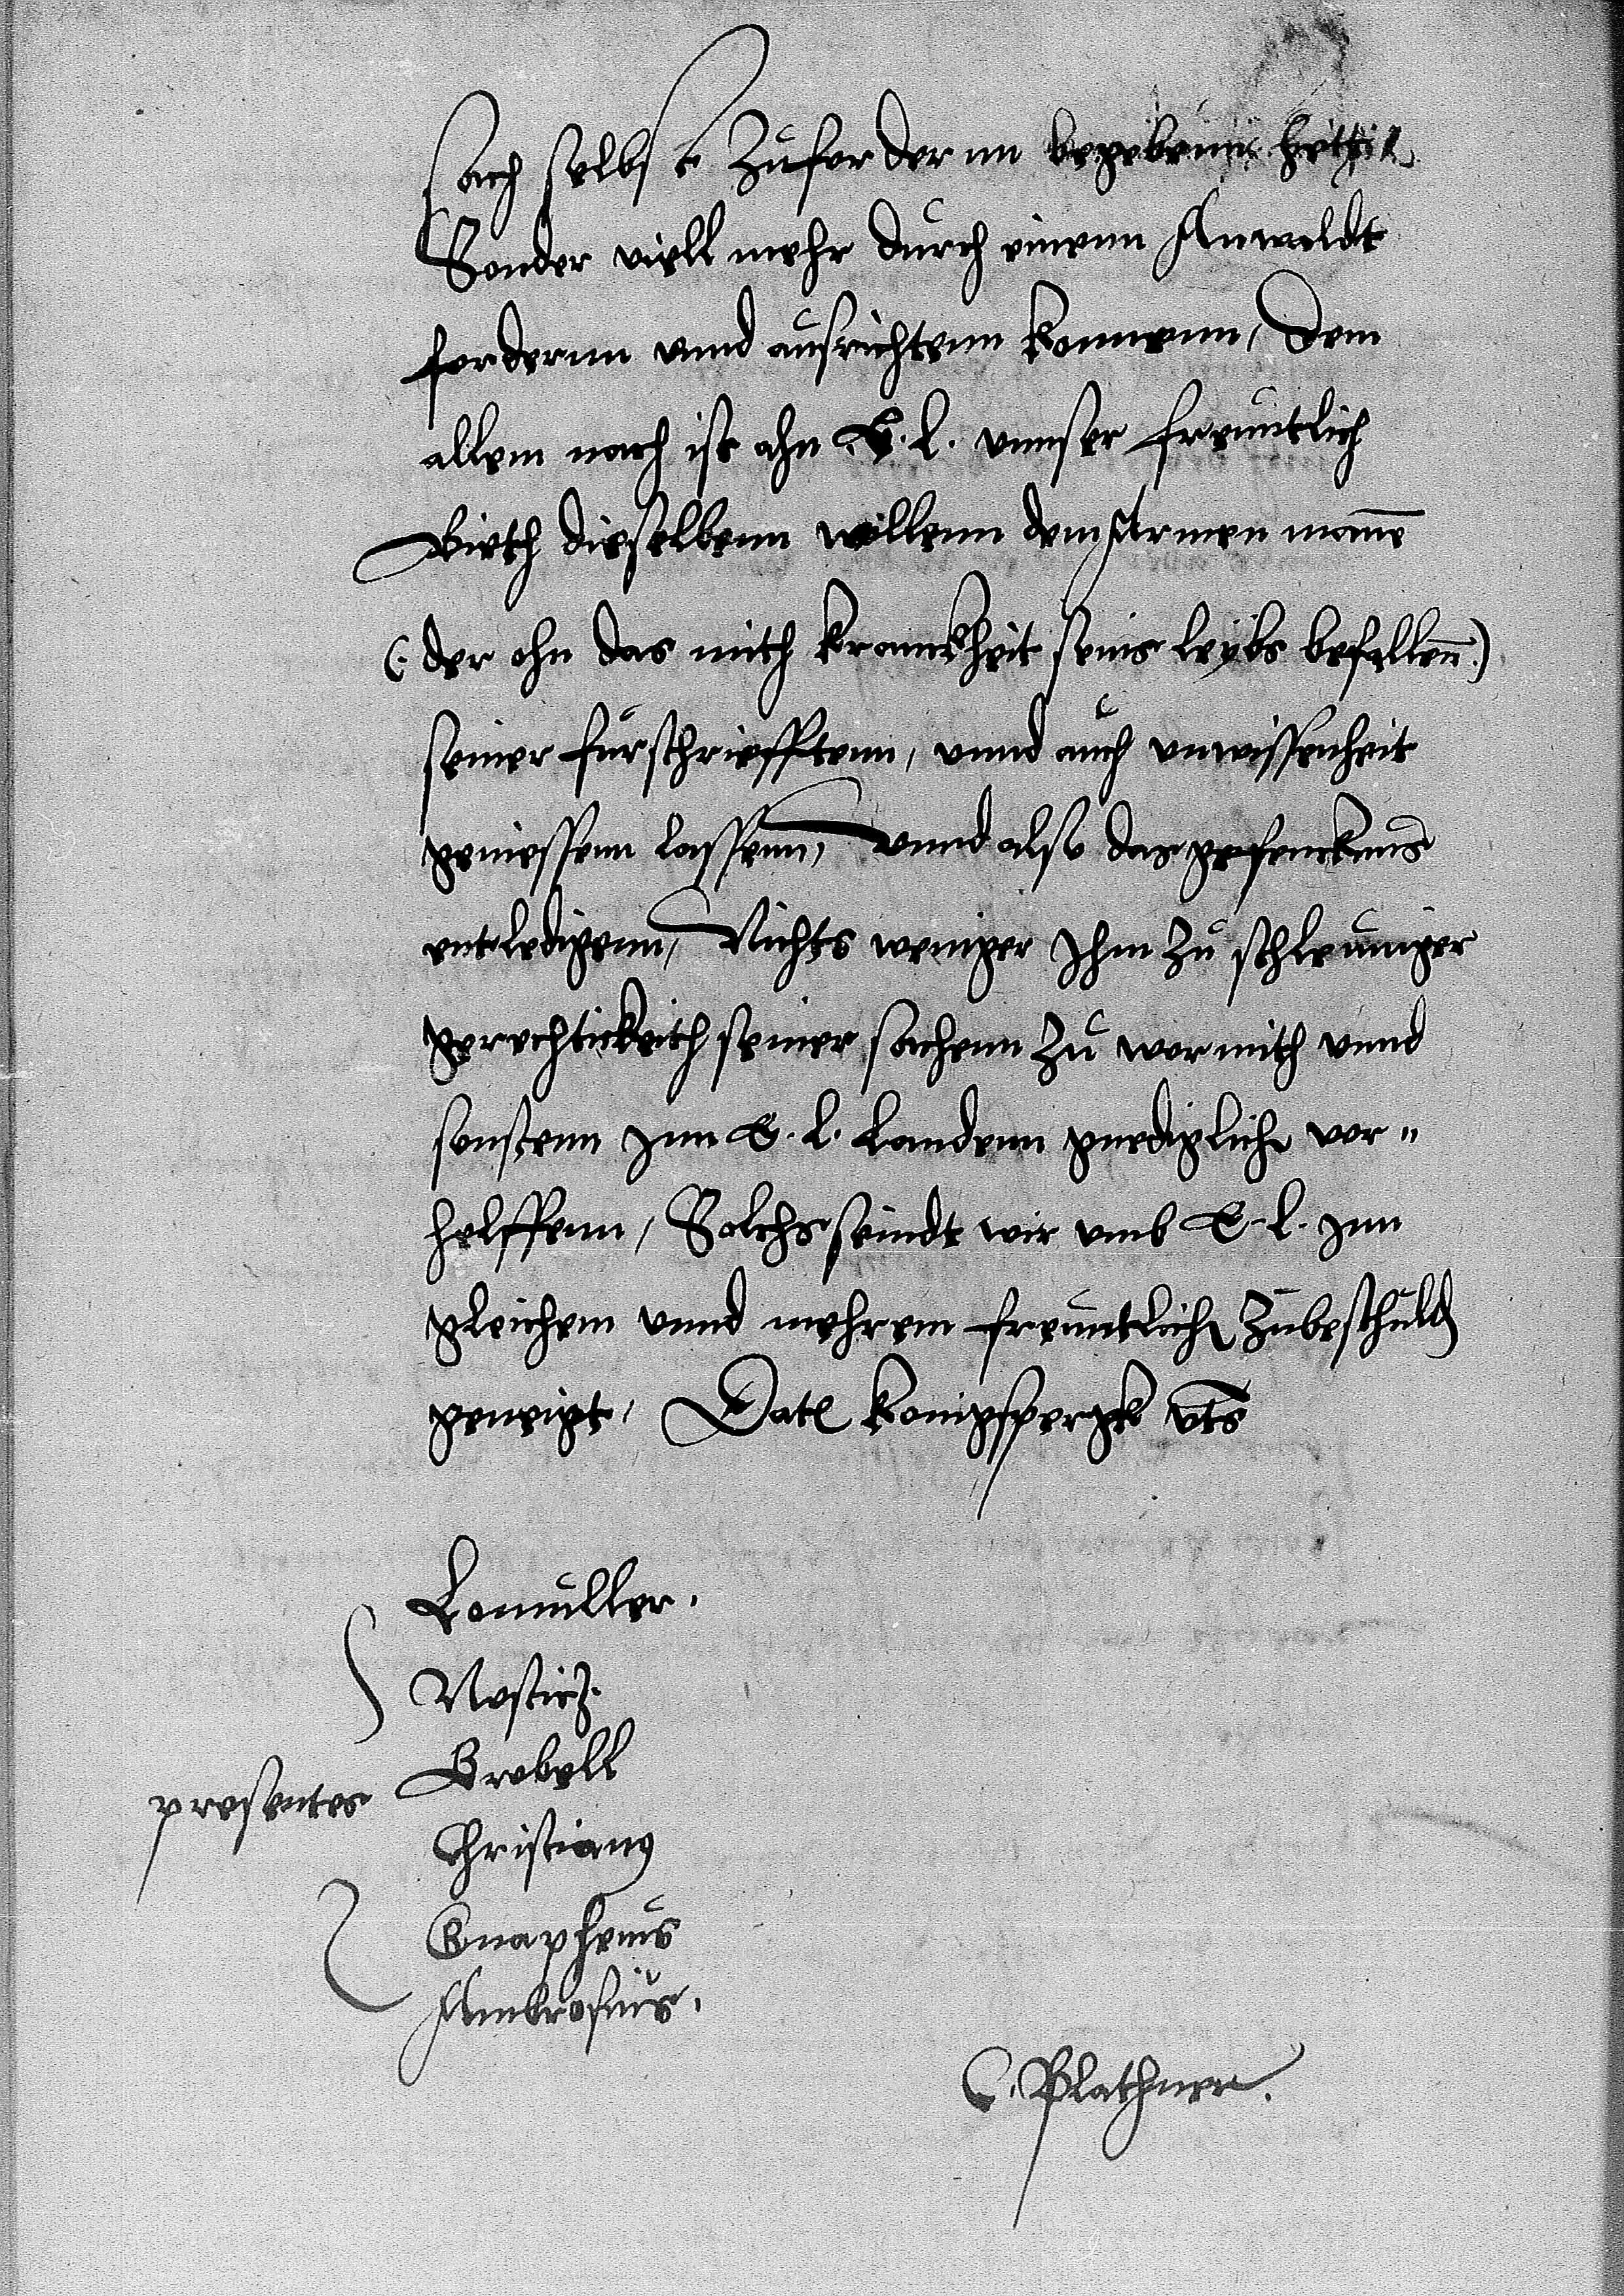 sach selbst zufordernn begebenn hette
Sonder viell mehr durch einenn Anwaldt
fordernn vnnd ausrichtenn konnenn, Dem
allem nach ist ahn E. L. vnnser freuntlich
Bieth dieselbenn wollenn dem Armen manne
(: der ohn das mith kranckheit seins leybs befallenn :)
seiner furschriefftenn, vnnd auch vnwissenheit
geniessenn lassenn, vnnd also das gefencknus
entledigenn, Nichts weniger Ihm zu schleuniger
gerechtickeith seiner sachenn zu wormith vnnd
sonstenn Inn E. L. Landenn gnediglich vor"
helffenn, Solchs seindt wir vmb E. L. Inn
gleichem vnnd mehrem freuntlich zubeschuld
geneigt, Datum konigspergk vts
Lomuller.
Nosticz.
presentes
Grobell
Christianus
Gnapheus
Ambrosius.
C. Plathner.